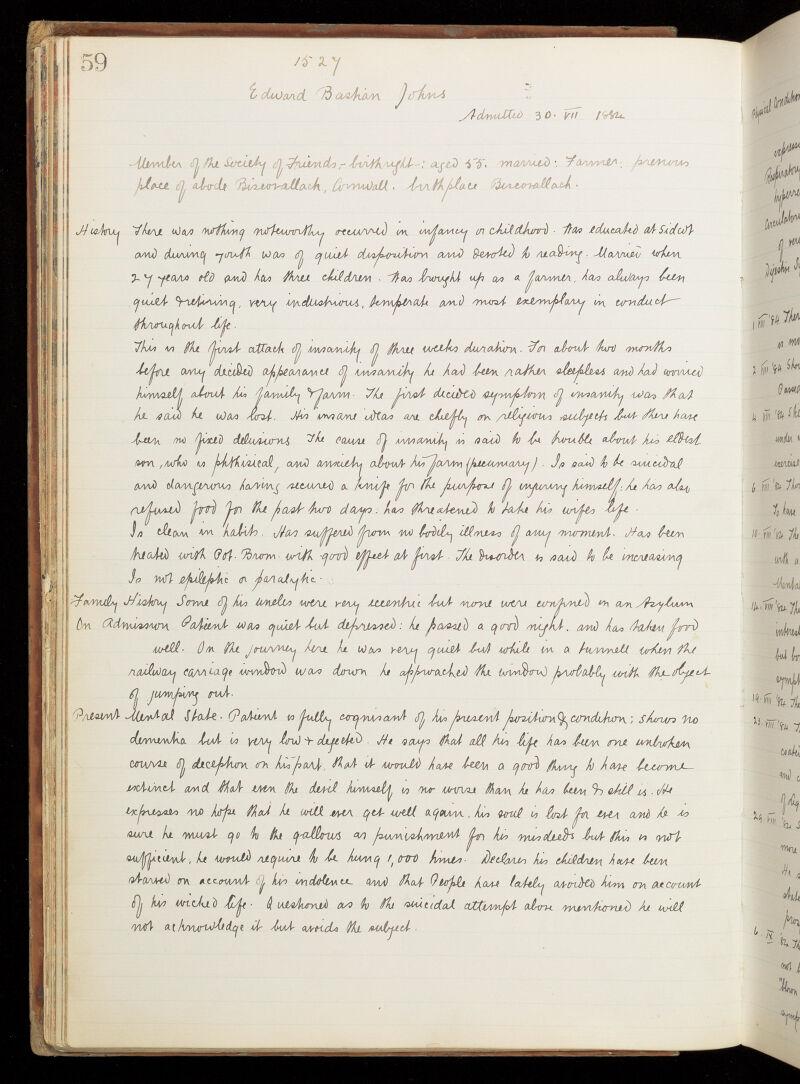 59
1527
Edward Bastian Johns
Admitted 30. VII 1884
Member of the Society of Friends,- birthright-: aged 55. married: Farmer: previous
place of abode Biscovallach, Cornwall. birthplace Biscovallach.
History There was nothing noteworthy occurred in infancy or childhood. Was educated at Sidcot
and during youth was of quiet disposition and devoted to reading. Married when
27 years old and has three children. Was brought up as a farmer, has always been
quiet & retiring, very industrious, temperate and most exemplary in conduct
throughout life.
This is the first attack of insanity of three weeks duration. For about two months
before any decided appearance of insanity he had been rather sleepless and had worried
himself about his family & farm. The first decided symptom of insanity was that
he said he was lost. His insane ideas are chiefly on religious subjects but there have
been no fixed delusions. The cause of insanity is said to be trouble about his eldest
son, who is phthisical, and anxiety about his farm (pecuniary). Is said to be suicidal
and dangerous having secured a knife for the purpose of injuring himself: he has also
refused food for the past two days: has threatened to take his wifes life.
Is clean in habits. Has suffered from no bodily illness of any moment. Has been
treated with Pot. Brom. with good effect at first. The disorder is said to be increasing
Is not epileptic or paralytic.
Family History Some of his uncles were very eccentric but none were confined in an Asylum
On Admission Patient was quiet but depressed: he passed a good night. and has taken food
well. On the journey here he was very quiet but while in a tunnell when the
railway carriage window was down he approached the window probably with the object
of jumping out.
Present Mental State. Patient is fully cognisant of his present position & condition; shows no
dementia but is very low & dejected. He says that all his life has been one unbroken
course of deception on his part, that it would have been a good thing to have become
extinct and that even the devil himself is no worse than he has been & still is. He
expresses no hope that he will ever get well again, his soul is lost for ever and he is
sure he must go to the gallows as punishment for his misdeeds but this is not
sufficient, he would require to be hung 1,000 times. Declares his children have been
starved on account of his indolence and that People have lately avoided him on account
of his wicked life. Questioned as to the suicidal attempt above mentioned he will
not acknowledge it but avoids the subject.
Physical Condition
Respiratory
Circulatory
Digestive
1 VIII '84
2 VIII '84
4 VIII '84
under
exercise
6 VIII '84
To have
10 VIII '84 The
with a
Mental
14 VIII '84 The
but
19 VIII '84 The
23 VIII '84
coated
and
29 VIII '84
more
He
state
6 IX '84
not